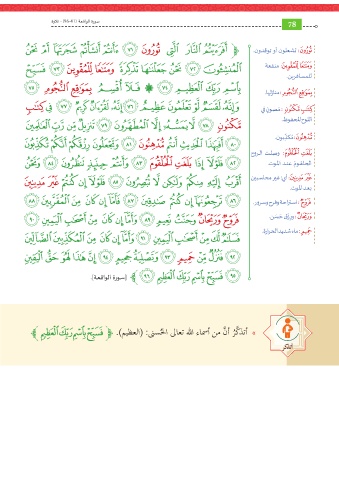 سورة الواقعة
78
﴿ أَفَرَءَيْتُمُ ٱلنَّارَ ٱلَّتِي تُورُونَ ٧١ ءَأَنتُمْ أَنشَأْتُمْ شَجَرَتَهَآ أَمْ نَحْنُ
ٱلْمُنشِـُٔونَ ٧٢ نَحْنُ جَعَلْنَـٰهَا تَذْكِرَةً وَمَتَـٰعًا لِّلْمُقْوِينَ ٧٣ فَسَبِّحْ
بِٱسْمِ رَبِّكَ ٱلْعَظِيمِ ٧٤ ۞ فَلَآ أُقْسِمُ بِمَوَٰقِعِ ٱلنُّجُومِ ٧٥
وَإِنَّهُۥ لَقَسَمٌ لَّوْ تَعْلَمُونَ عَظِيمٌ ٧٦ إِنَّهُۥ لَقُرْءَانٌ كَرِيمٌ ٧٧ فِي كِتَـٰبٍ
مَّكْنُونٍ ٧٨ لَّا يَمَسُّهُۥٓ إِلَّا ٱلْمُطَهَّرُونَ ٧٩ تَنزِيلٌ مِّن رَّبِّ ٱلْعَـٰلَمِينَ
٨٠ أَفَبِهَـٰذَا ٱلْحَدِيثِ أَنتُم مُّدْهِنُونَ ٨١ وَتَجْعَلُونَ رِزْقَكُمْ أَنَّكُمْ تُكَذِّبُونَ
٨٢ فَلَوْلَآ إِذَا بَلَغَتِ ٱلْحُلْقُومَ ٨٣ وَأَنتُمْ حِينَئِذٍ تَنظُرُونَ ٨٤ وَنَحْنُ
أَقْرَبُ إِلَيْهِ مِنكُمْ وَلَـٰكِن لَّا تُبْصِرُونَ ٨٥ فَلَوْلَآ إِن كُنتُمْ غَيْرَ مَدِينِينَ
٨٦ تَرْجِعُونَهَآ إِن كُنتُمْ صَـٰدِقِينَ ٨٧ فَأَمَّآ إِن كَانَ مِنَ ٱلْمُقَرَّبِينَ ٨٨
فَرَوْحٌ وَرَيْحَانٌ وَجَنَّتُ نَعِيمٍ ٨٩ وَأَمَّآ إِن كَانَ مِنْ أَصْحَـٰبِ ٱلْيَمِينِ ٩٠
فَسَلَـٰمٌ لَّكَ مِنْ أَصْحَـٰبِ ٱلْيَمِينِ ٩١ وَأَمَّآ إِن كَانَ مِنَ ٱلْمُكَذِّبِينَ ٱلضَّآلِّينَ
٩٢ فَنُزُلٌ مِّنْ حَمِيمٍ ٩٣ وَتَصْلِيَةُ جَحِيمٍ ٩٤ إِنَّ هَـٰذَا لَهُوَ حَقُّ ٱلْيَقِينِ
٩٥ فَسَبِّحْ بِٱسْمِ رَبِّكَ ٱلْعَظِيمِ ٩٦ ﴾ [سورة الواقعة]
تُورُونَ: تشعلون أو توقدون.
وَمَتَاعًا لِلْمُقْوِينَ: منفعة
للمسافرين.
بِمَوَاقِعِ النُّجُومِ: منازلها.
كِتَابٍ مَكْنُونٍ: مصون في
اللوح المحفوظ.
مُدْهِنُونَ: مكذّبون.
بَلَغَتِ الْحُلْقُومَ: وصلت الروح
الحلقوم عند الموت.
غَيْرَ مَدِينِينَ: أي غير محاسبين
بعد الموت.
فَرَوْحٌ: استراحة وفرح وسرور.
وَرَيْحَانٌ: ورزق حسن.
حَمِيمٍ: ماء شديد الحرارة.
أتذكّر أنّ من أسماء الله تعالى الحُسنى: (العظيم). ﴿ فَسَبِّحْ بِٱسْمِ رَبِّكَ ٱلْعَظِيمِ ﴾
أتذكّر